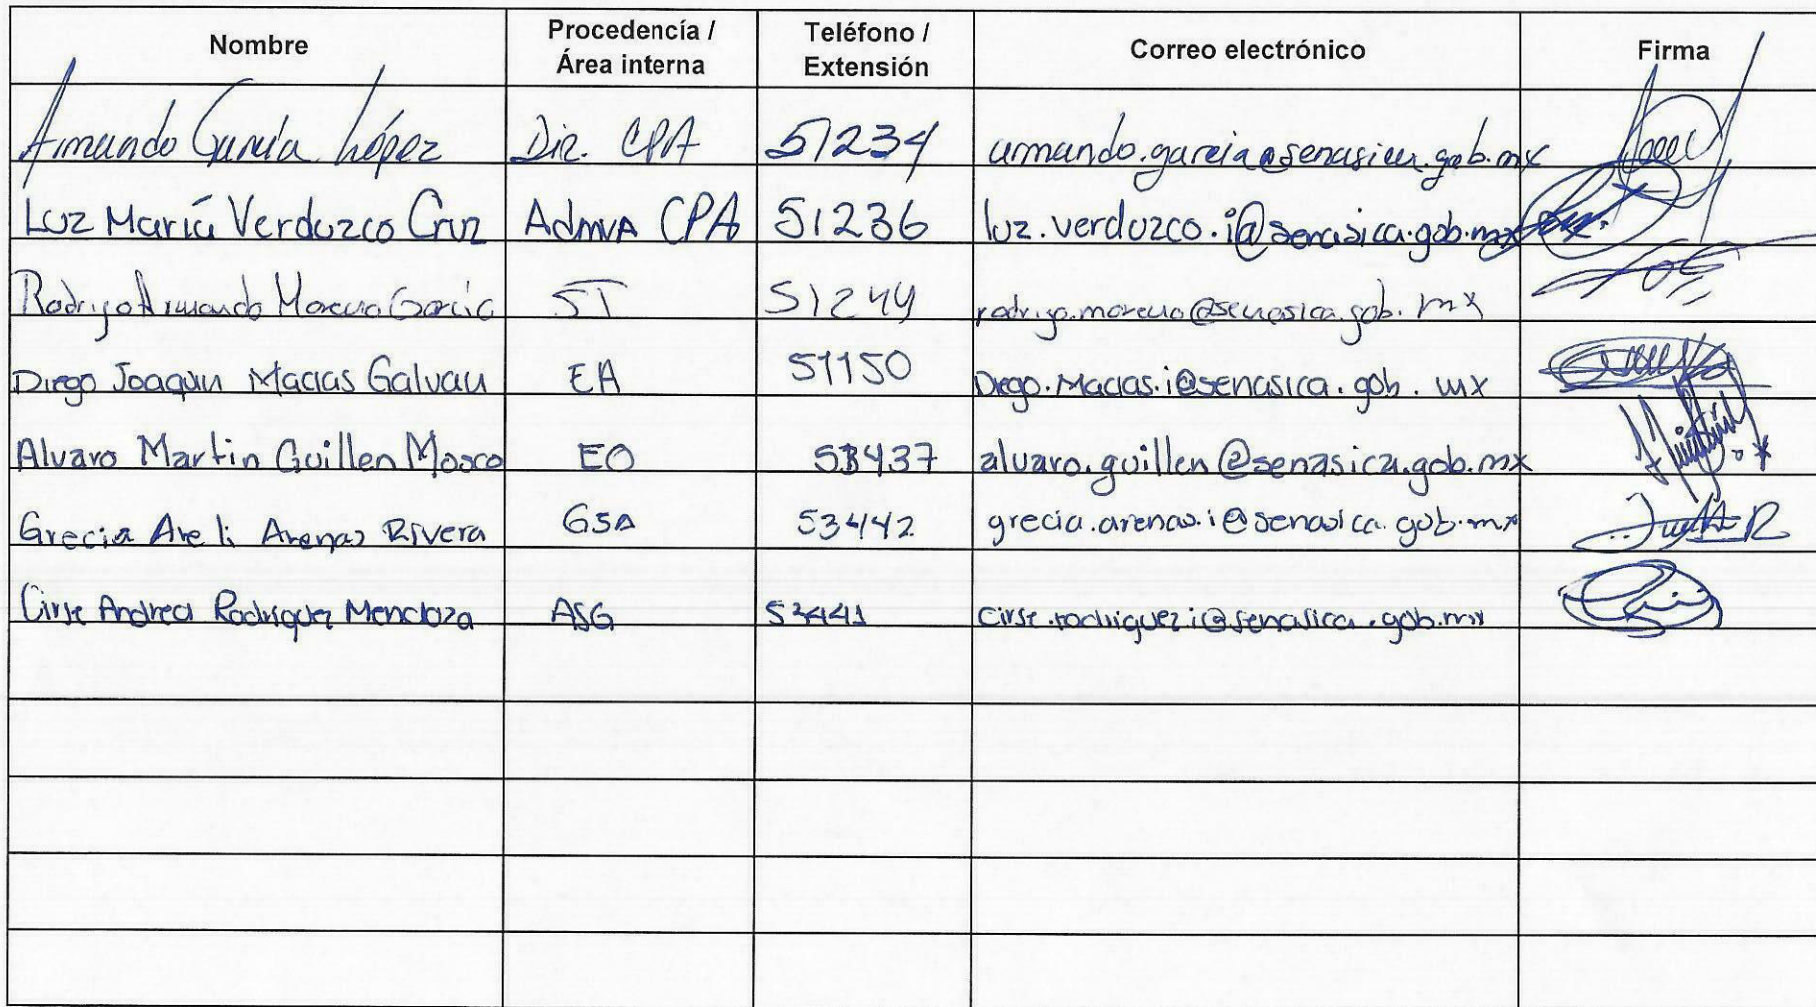 Nombre Procedencía / Área interna Teléfono / Extensión Correo electrónico Firma
Armando García López Dir. CPA 51234 armando.garcia@senasica.gob.mx
Luz María Verduzco Cruz Admva CPA 51236 luz.verduzco.i@senasica.gob.mx
Rodrigo Armando Moreno García ST 51244 rodrigo.moreno@senasica.gob.mx
Diego Joaquin Macias Galvan EA 51150 Diego.Macias.i@senasica.gob.mx
Alvaro Martin Guillen Mosco EO 53437 alvaro.guillen@senasica.gob.mx
Grecia Areli Arenas Rivera GSA 53442 grecia.arenas.i@senasica.gob.mx
Cirse Andrea Rodriguez Mendoza ASG cirse.rodriguez.i@senasica.gob.mx